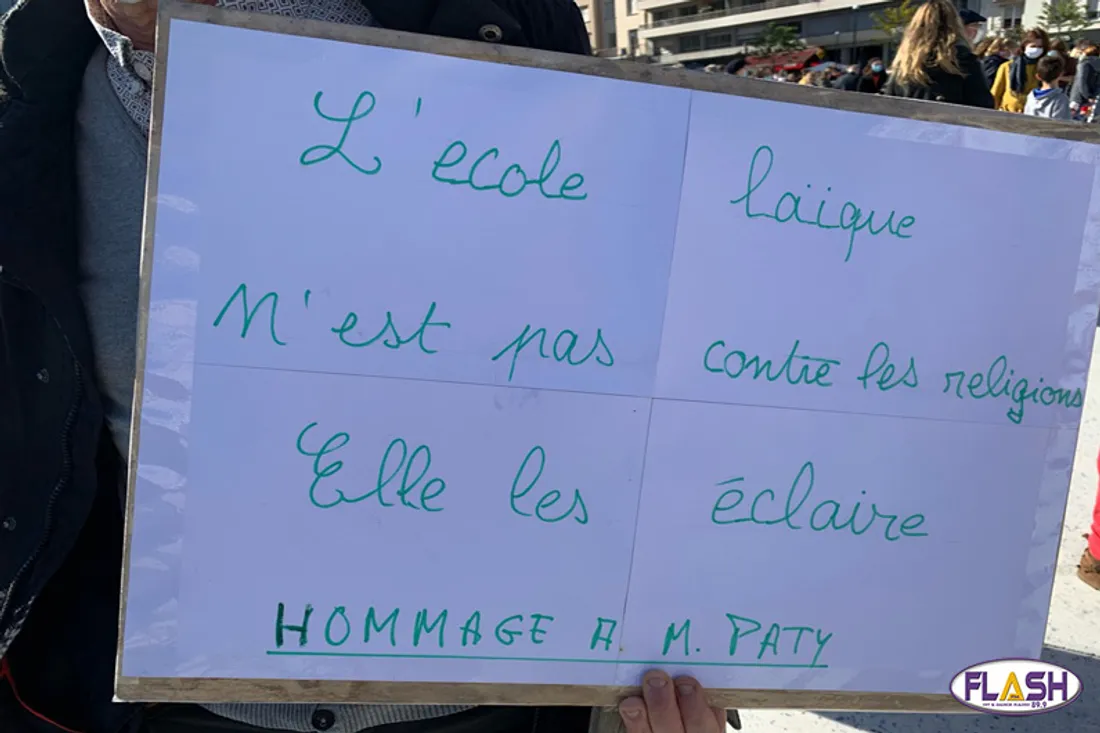 L'ecole laïque
N'est pas contre les religions
Elle les éclaire
HOMMAGE A M. PATY
FLASH
89.9